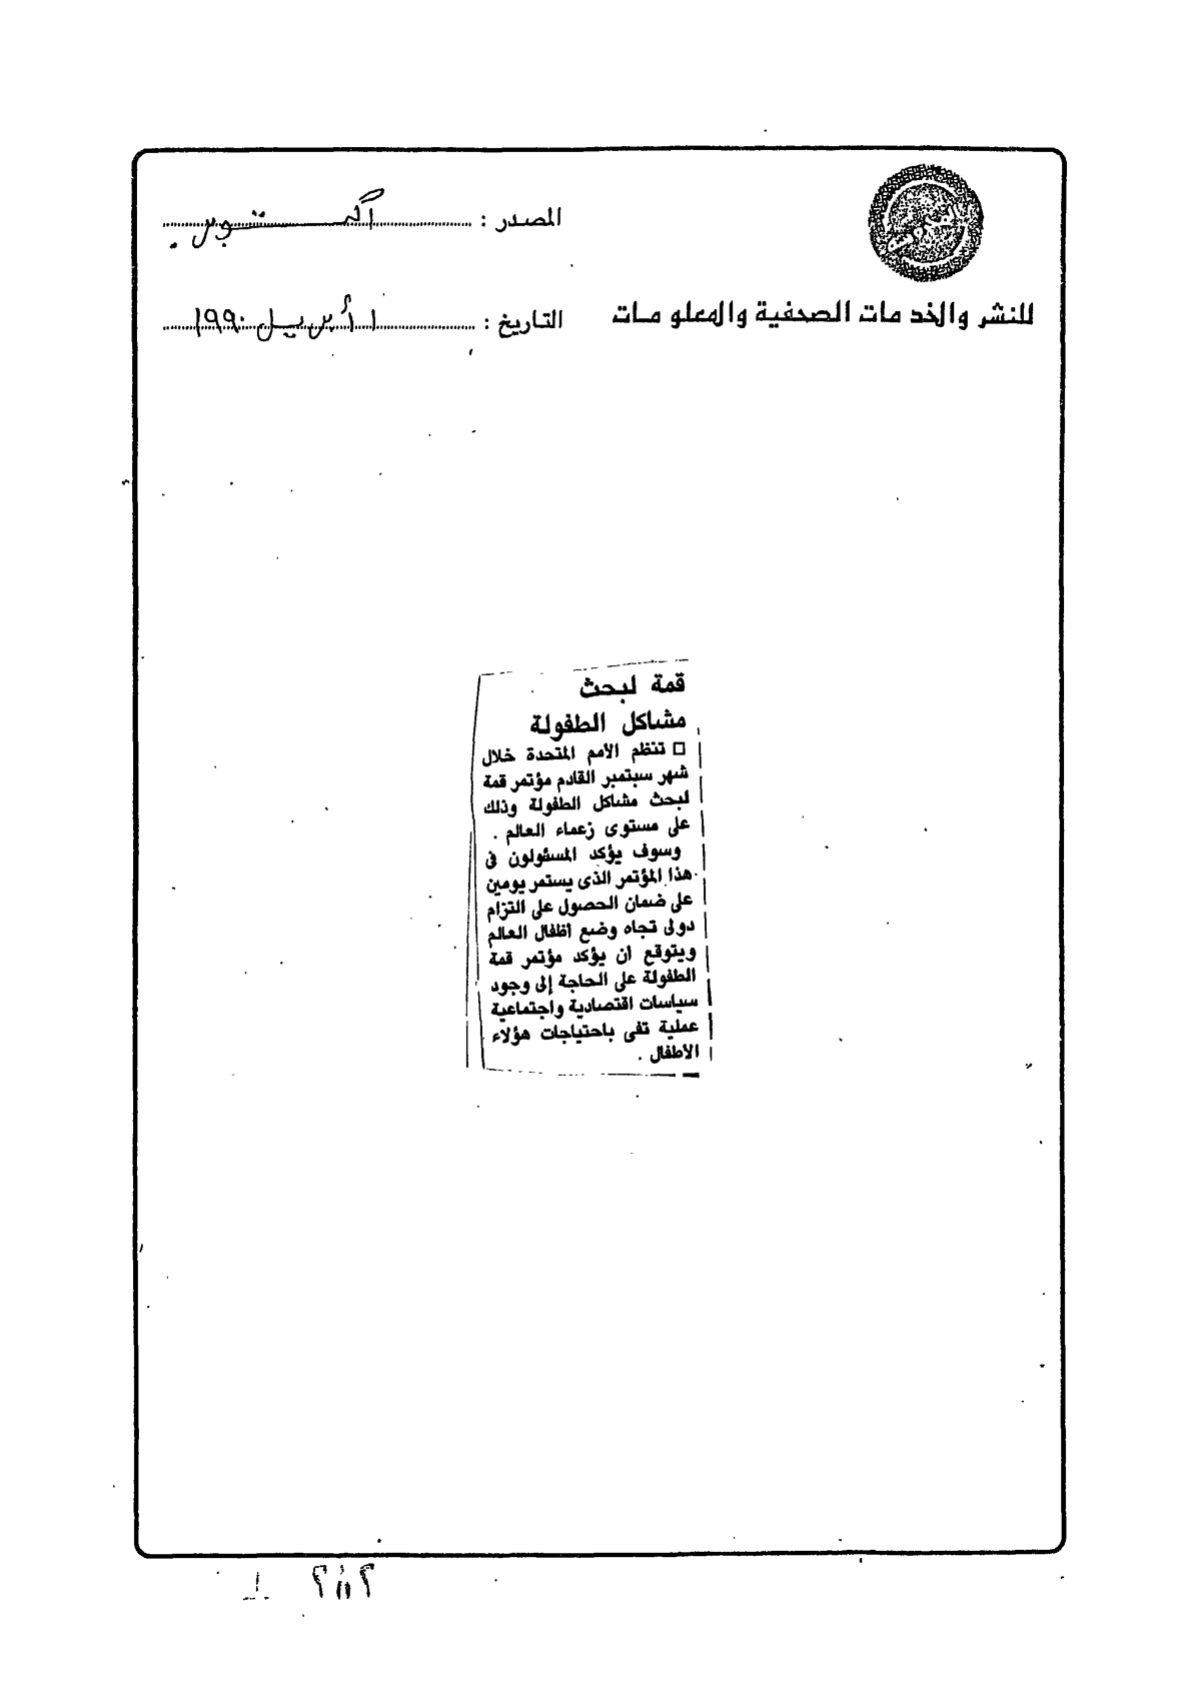 المصدر : أكتوبر
للنشر والخدمات الصحفية والمعلومات
التاريخ : ١ أبريل ١٩٩٠
قمة لبحث
مشاكل الطفولة
□ تنظم الأمم المتحدة خلال
شهر سبتمبر القادم مؤتمر قمة
لبحث مشاكل الطفولة وذلك
على مستوى زعماء العالم .
وسوف يؤكد المسئولون فى
هذا المؤتمر الذى يستمر يومين
على ضمان الحصول على التزام
دولى تجاه وضع اطفال العالم
ويتوقع ان يؤكد مؤتمر قمة
الطفولة على الحاجة إلى وجود
سياسات اقتصادية واجتماعية
عملية تفى باحتياجات هؤلاء
الأطفال .